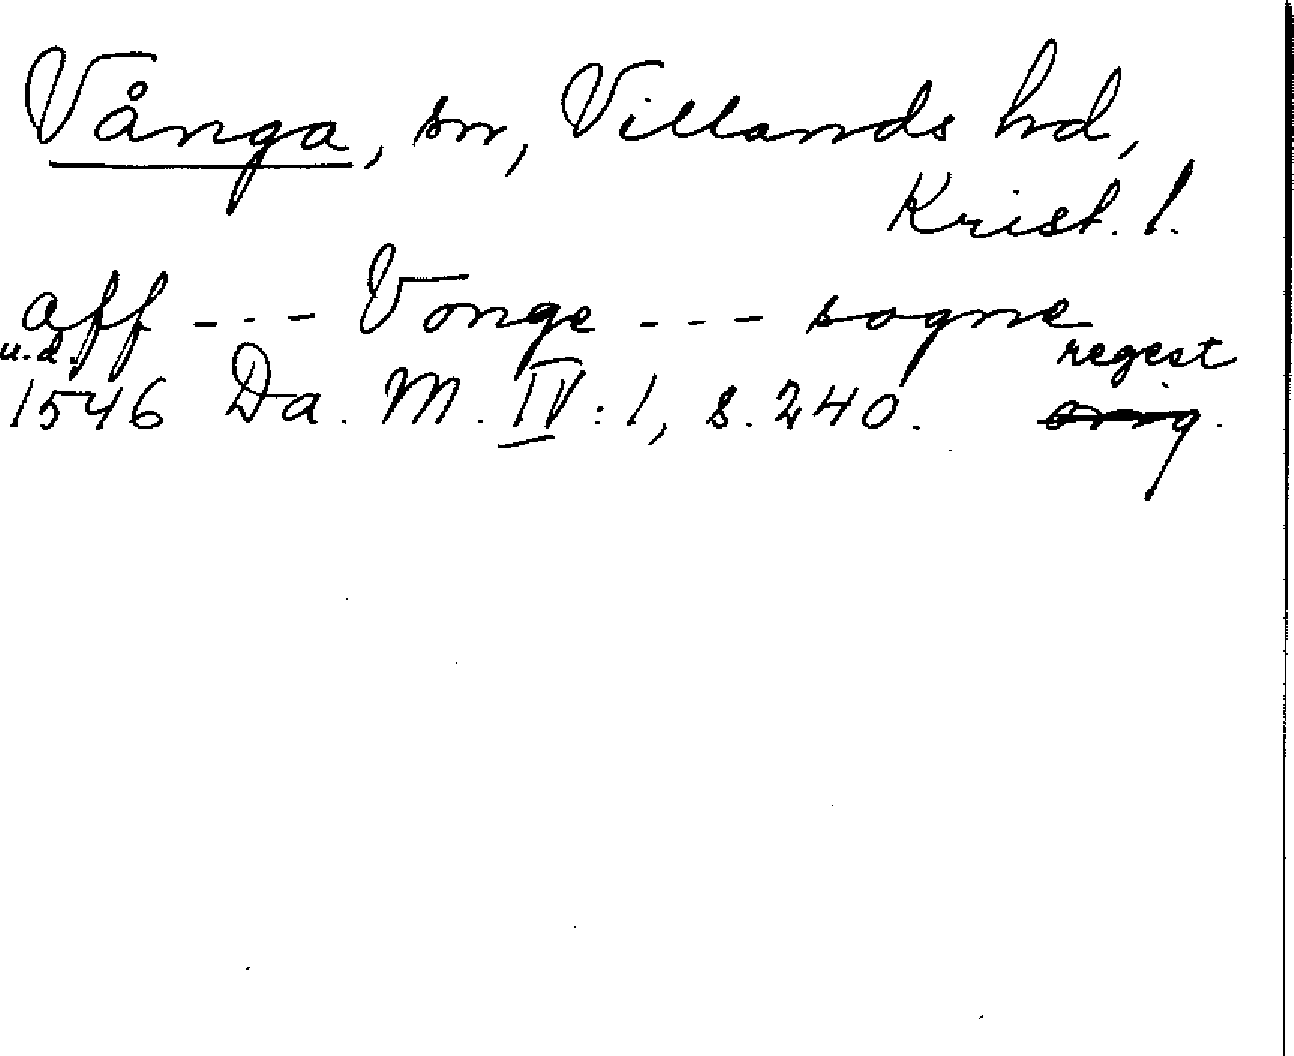 Vånga, sn, Villands hd,
Krist. l.
aff --- Vonge --- sogne
u.d. regest
1546 Da. M. IV: 1, s. 240. orig.